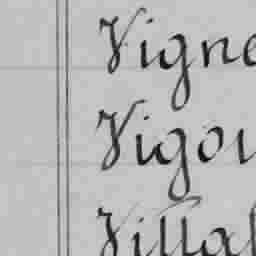 Vigne
Vigou
Villaf